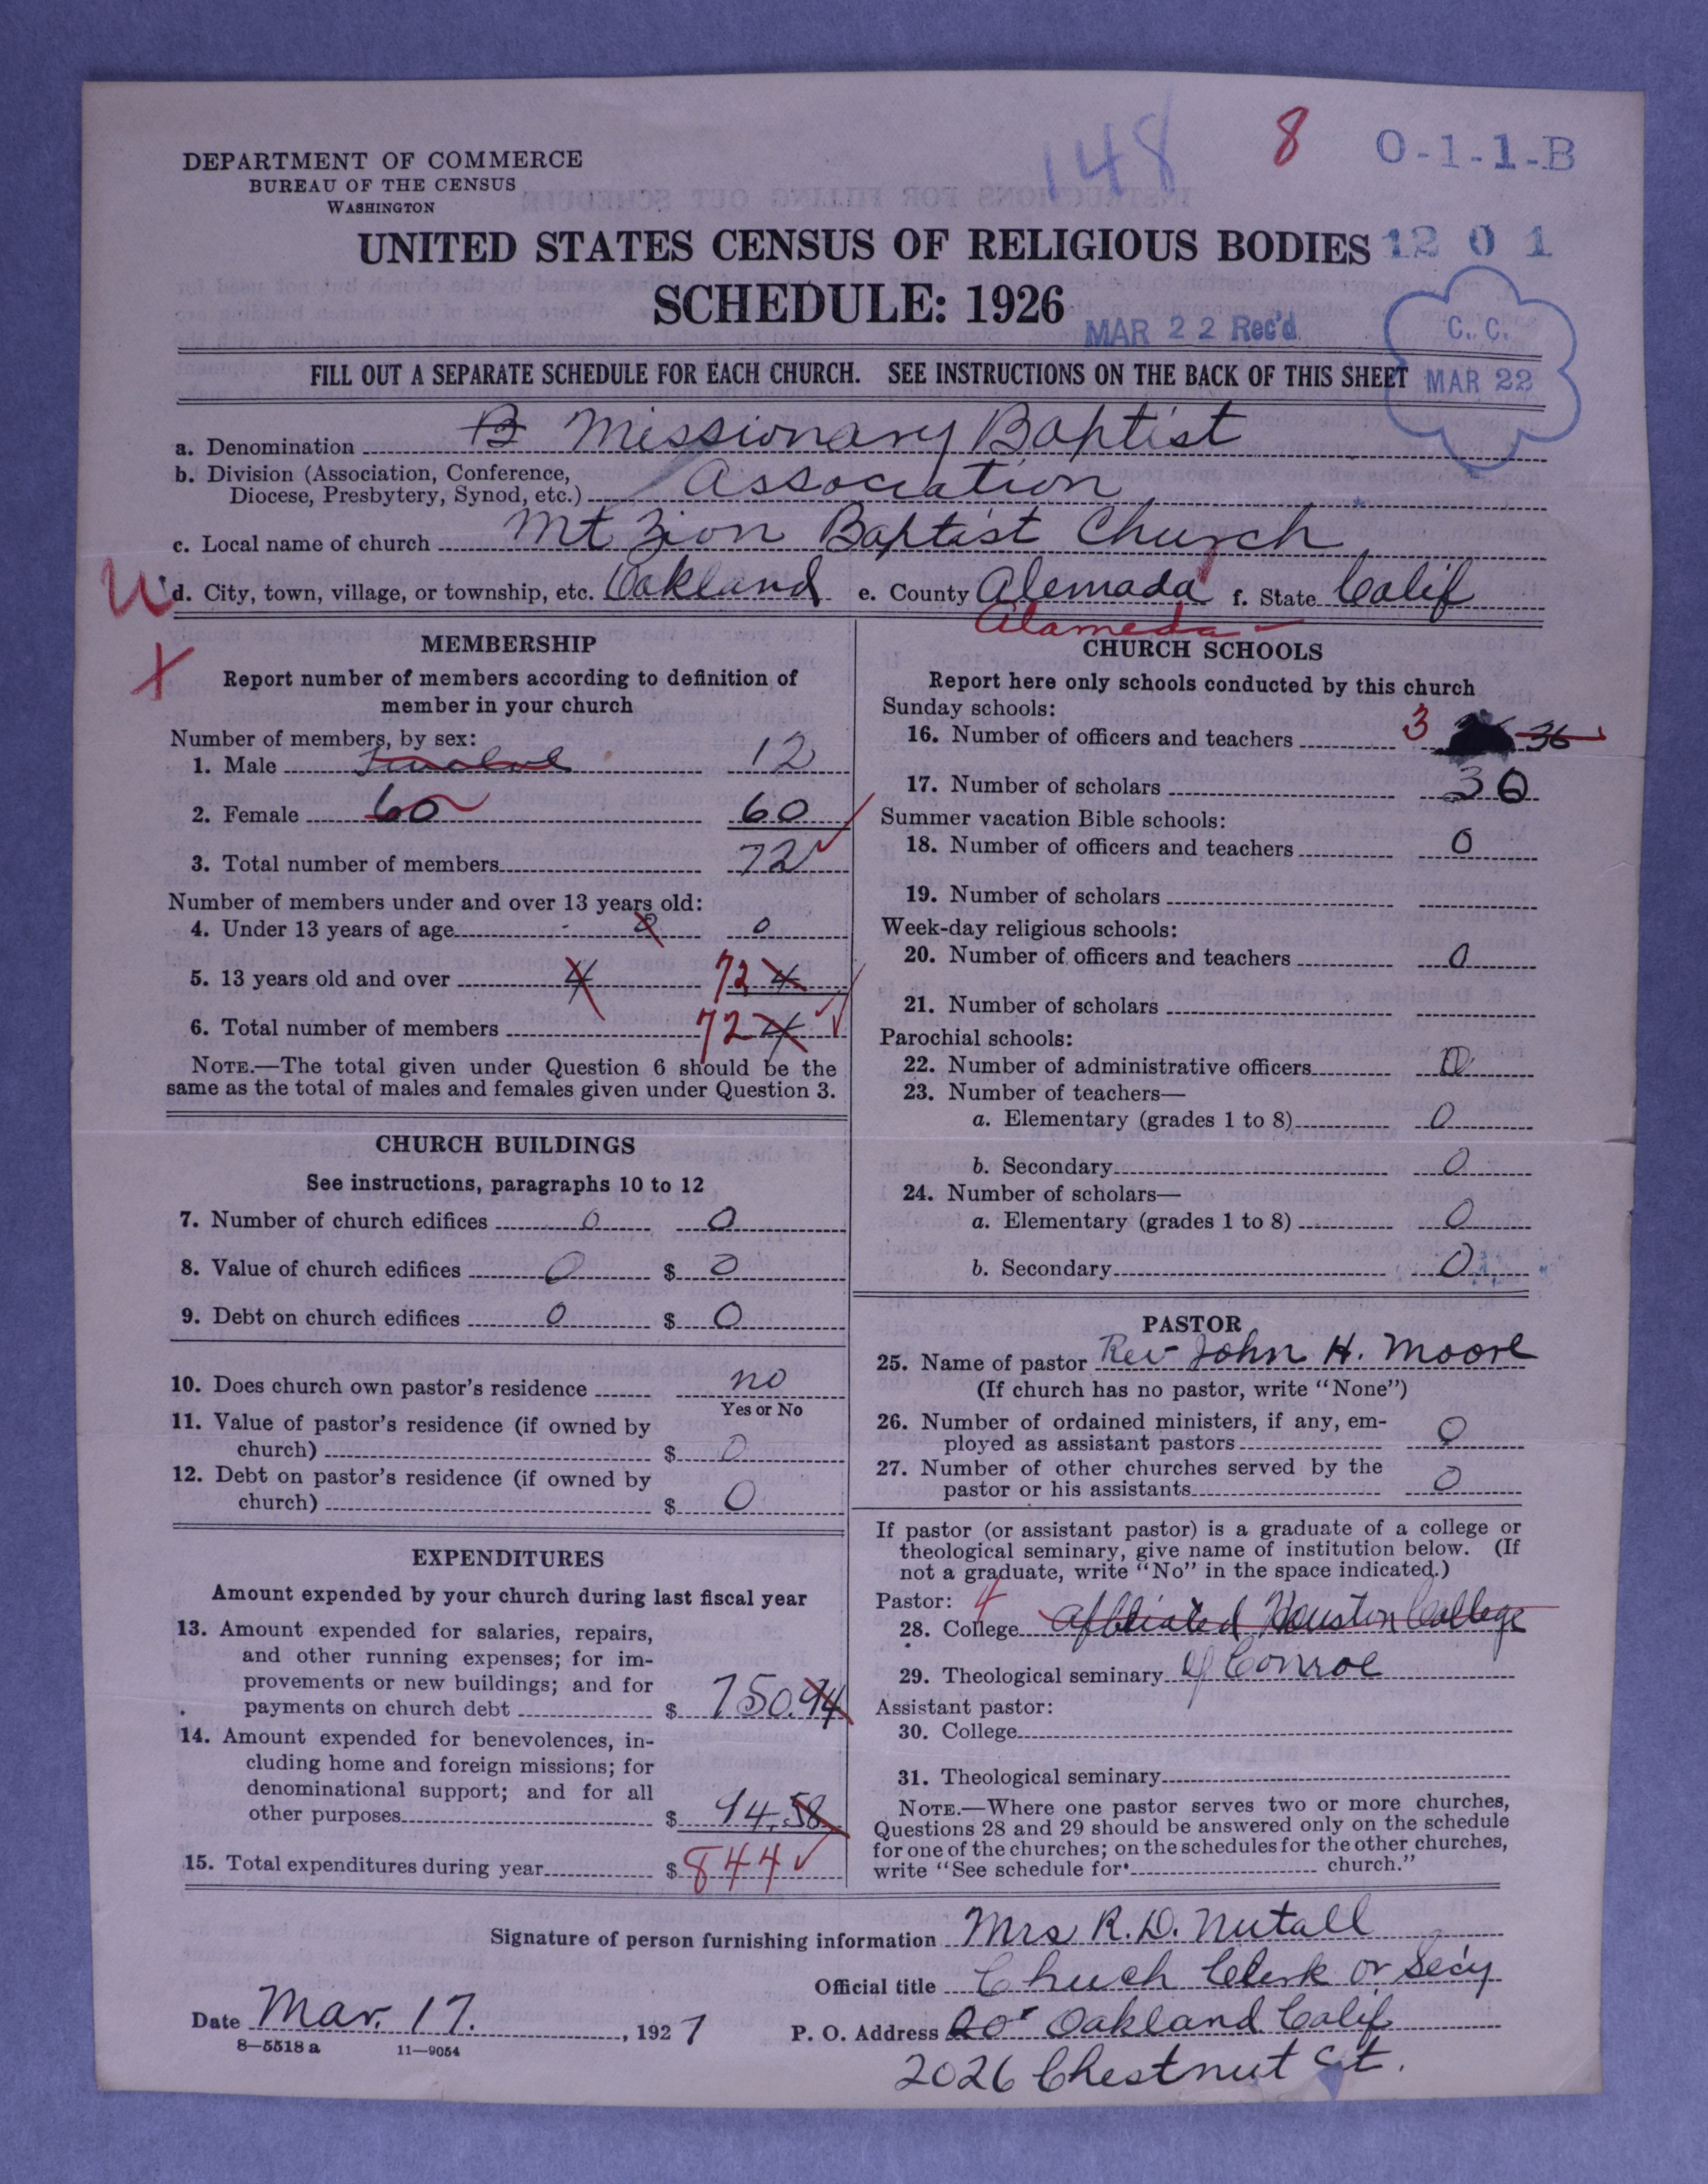 148 8 O-1-1-B
DEPARTMENT OF COMMERCE
BUREAU OF THE CENSUS
WASHINGTON
UNITED STATES CENSUS OF RELIGIOUS BODIES 1201
SCHEDULE: 1926
MAR 22 Rec'd
C. C.
MAR 22
FILL OUT A SEPARATE SCHEDULE FOR EACH CHURCH. SEE INSTRUCTIONS ON THE BACK OF THIS SHEET
a. Denomination B Missionary Baptist
b. Division (Association, Conference,
Diocese, Presbytery, Synod, etc.) Association
c. Local name of church Mt Zion Baptist Church
d. City, town, village, or township, etc. Oakland e. County Alemada f. State Calif
Alameda
MEMBERSHIP
Report number of members according to definition of
member in your church
Number of members, by sex:
1. Male Twelve 12
2. Female 60 60
3. Total number of members 72
Number of members under and over 13 years old:
4. Under 13 years of age 0
5. 13 years old and over 4 72 4
6. Total number of members 72 4
NOTE.—The total given under Question 6 should be the
same as the total of males and females given under Question 3.
CHURCH BUILDINGS
See instructions, paragraphs 10 to 12
7. Number of church edifices 0 0
8. Value of church edifices 0 $ 0
9. Debt on church edifices 0 $ 0
10. Does church own pastor's residence no
Yes or No
11. Value of pastor's residence (if owned by
church) $ 0
12. Debt on pastor's residence (if owned by
church) $ 0
EXPENDITURES
Amount expended by your church during last fiscal year
13. Amount expended for salaries, repairs,
and other running expenses; for im-
provements or new buildings; and for
payments on church debt $ 750.94
14. Amount expended for benevolences, in-
cluding home and foreign missions; for
denominational support; and for all
other purposes $ 94.58
15. Total expenditures during year $ 844
CHURCH SCHOOLS
Report here only schools conducted by this church
Sunday schools:
16. Number of officers and teachers 3 36
17. Number of scholars 36
Summer vacation Bible schools:
18. Number of officers and teachers 0
19. Number of scholars
Week-day religious schools:
20. Number of officers and teachers 0
21. Number of scholars
Parochial schools:
22. Number of administrative officers 0
23. Number of teachers—
a. Elementary (grades 1 to 8) 0
b. Secondary 0
24. Number of scholars—
a. Elementary (grades 1 to 8) 0
b. Secondary 0
PASTOR
25. Name of pastor Rev John H. Moore
(If church has no pastor, write "None")
26. Number of ordained ministers, if any, em-
ployed as assistant pastors 0
27. Number of other churches served by the
pastor or his assistants 0
If pastor (or assistant pastor) is a graduate of a college or
theological seminary, give name of institution below. (If
not a graduate, write "No" in the space indicated.)
Pastor: 4
28. College Affiliated Houston College
29. Theological seminary of Conroe
Assistant pastor:
30. College
31. Theological seminary
NOTE.—Where one pastor serves two or more churches,
Questions 28 and 29 should be answered only on the schedule
for one of the churches; on the schedules for the other churches,
write "See schedule for church."
Signature of person furnishing information Mrs R. D. Nutall
Official title Chuch Clerk or Sec'y
Date Mar. 17. , 1927 P. O. Address Oakland Calif
8—5518 a 11—9054
2026 Chestnut St.